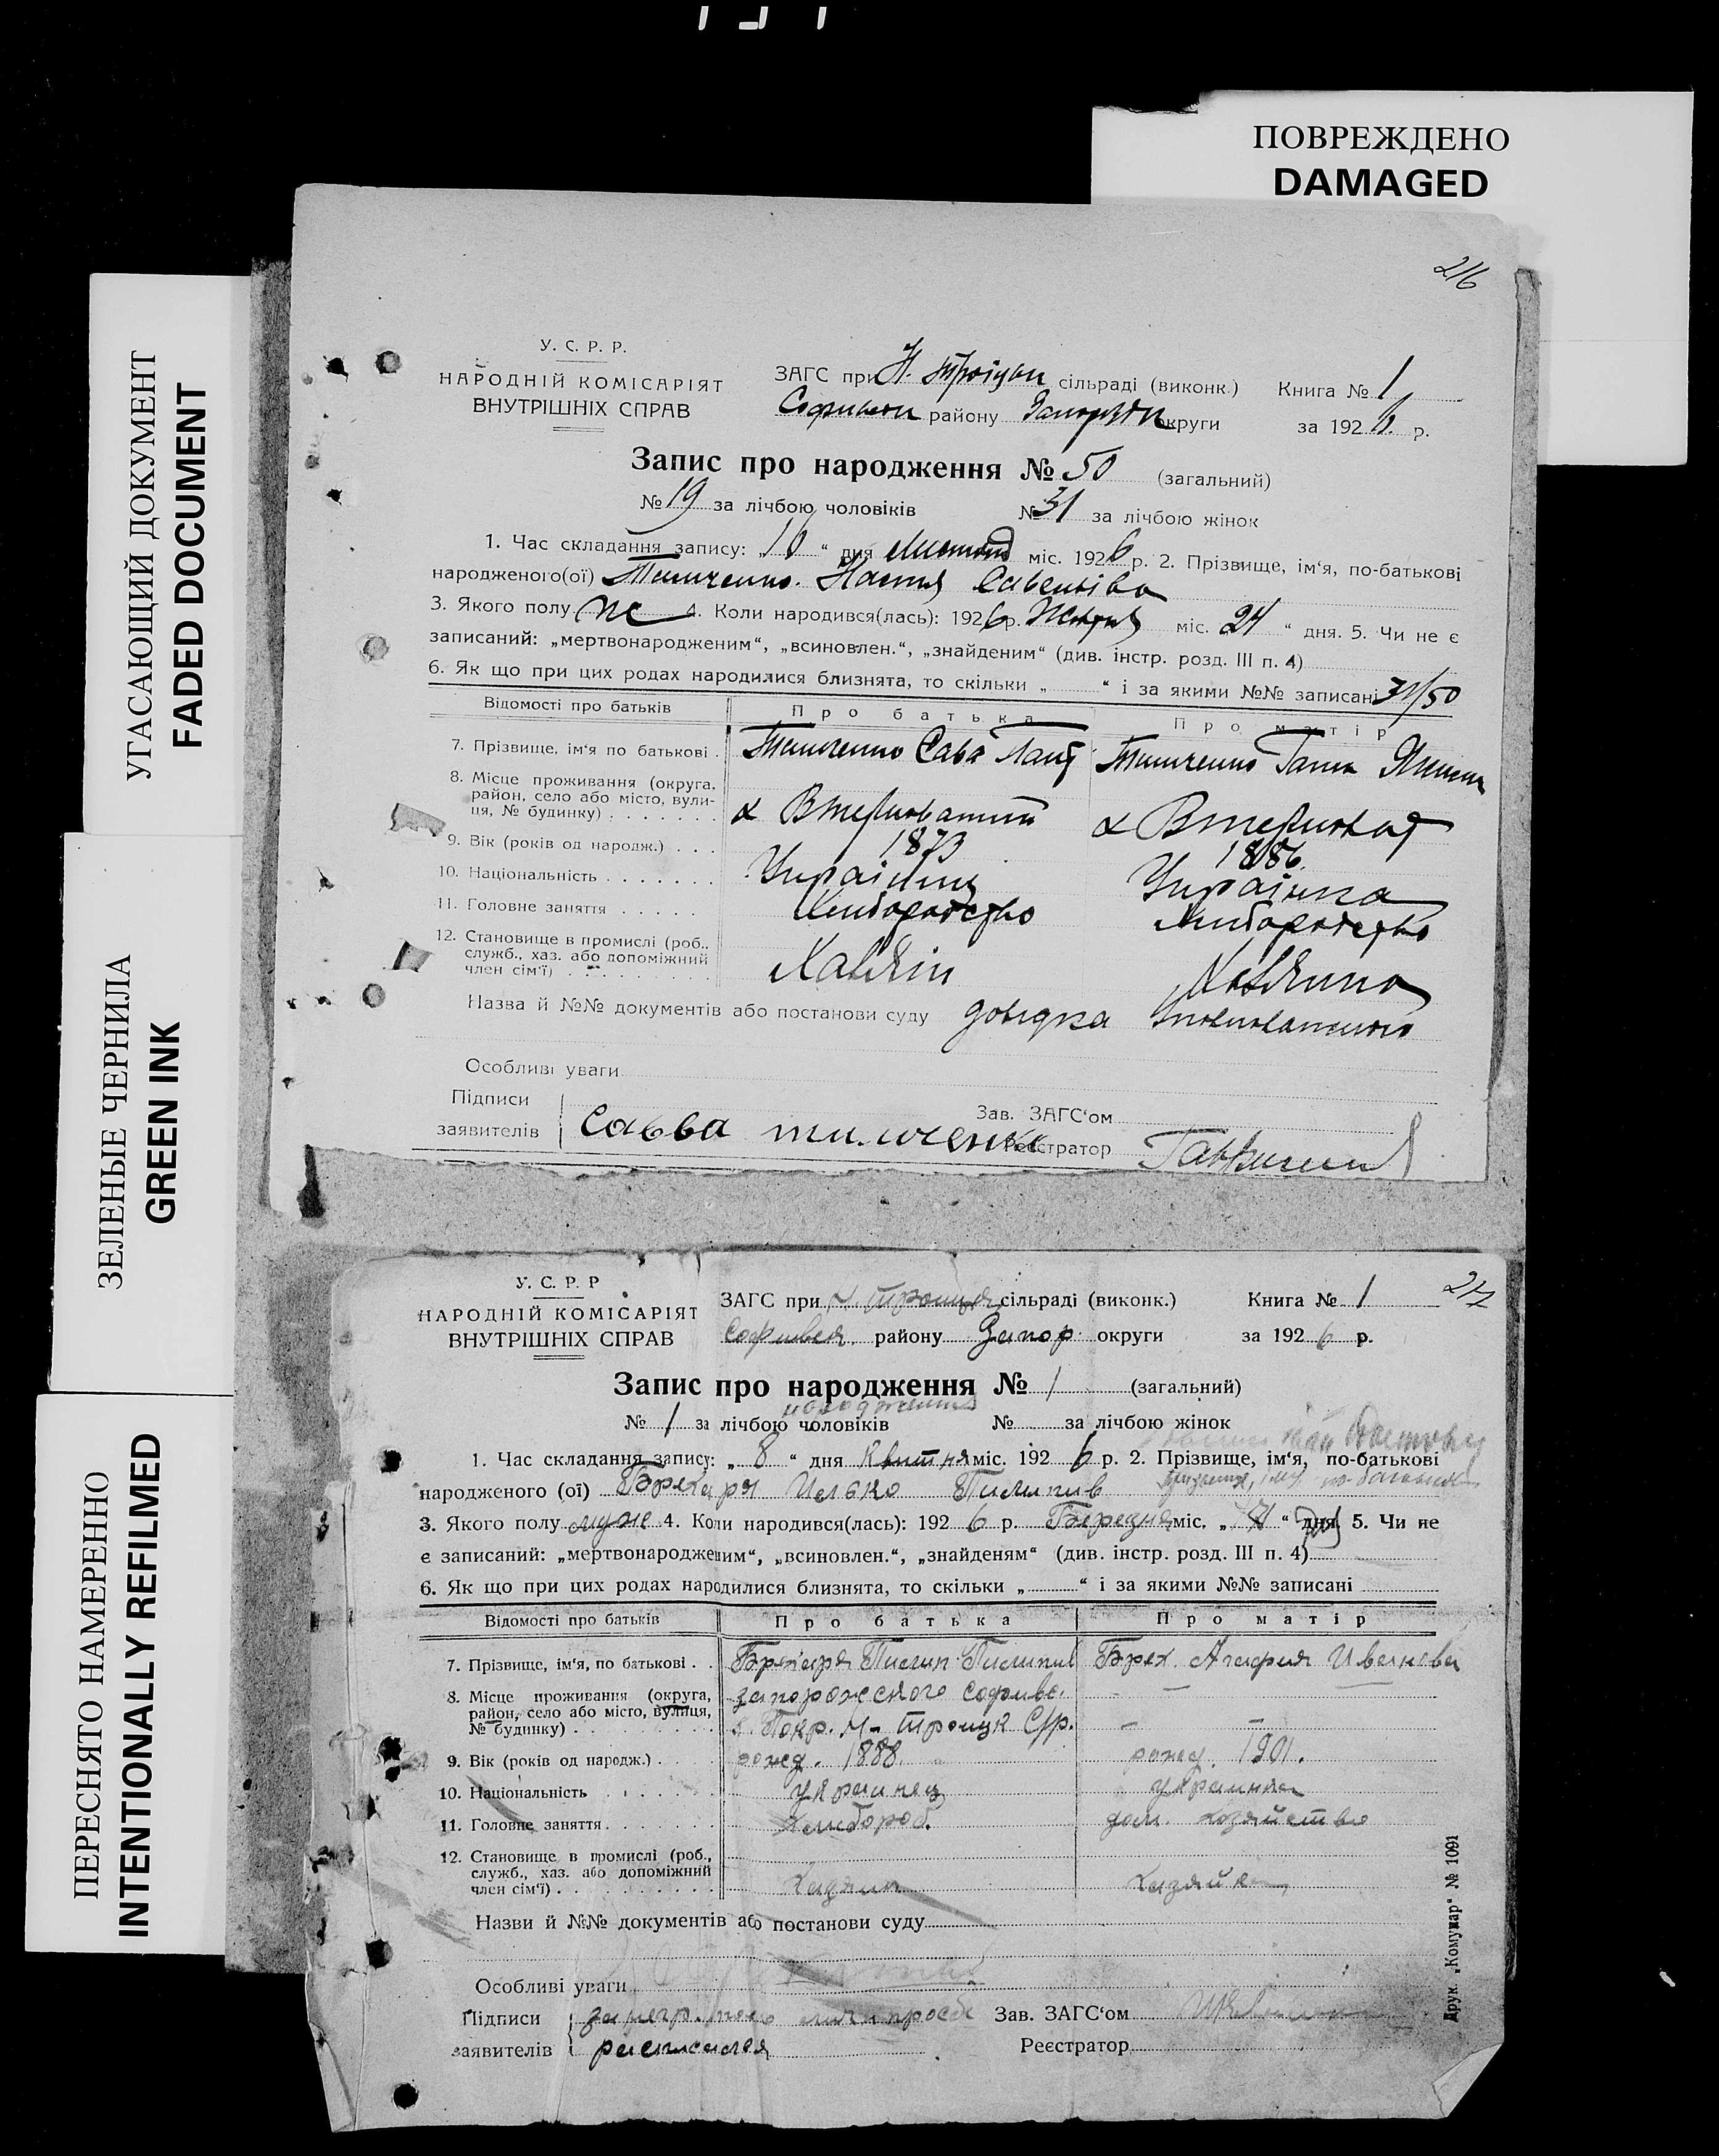 ПОВРЕЖДЕНО
DAMAGED
УГАСАЮЩИЙ ДОКУМЕНТ
FADED DOCUMENT
ЗЕЛЕНЫЕ ЧЕРНИЛА
GREEN INK
ПЕРЕСНЯТО НАМЕРЕННО
INTENTIONALLY REFILMED
216
У. С. Р. Р.
НАРОДНІЙ КОМІСАРІЯТ
ВНУТРІШНІХ СПРАВ
ЗАГС при Н. Троіцьк сільраді (виконк.) Книга № 1
району округи за 1926 р.
Запис про народження № 50 (загальний)
№ 19 за лічбою чоловіків № 31 за лічбою жінок
1. Час складання запису: „ 10 “ дня Листопад міс. 1926 р. 2. Прізвище, ім‘я, по-батькові
народженого(ої) Тимченко Настя Савельіва
3. Якого полу ж 4. Коли народився(лась): 1926 р. Жовтня міс. 24 “ дня. 5. Чи не є
записаний: „мертвонародженим“, „всиновлен.“, „знайденим“ (див. інстр. розд. III п. 4)
6. Як що при цих родах народилися близнята, то скільки „ “ і за якими №№ записані 31/50
Відомості про батьків Про батька Про матір
7. Прізвище, ім‘я по батькові . Тимченко Сава Тимченко Ганна
8. Місце проживання (округа,
район, село або місто, вули-
ця, № будинку) . . . . . . .
9. Вік (років од народж.) . . . 1873 1886
10. Національність . . . . . . . Українец Українка
11. Головне заняття . . . . . Хлиборобство Хлиборобство
12. Становище в промислі (роб.,
служб., хаз. або допоміжний
член сім‘ї) . . . . . . . . Хазяін Хазяйка
Назва й №№ документів або постанови суду довідка
Особливі уваги
Підписи
заявителів Савва тимченко
Зав. ЗАГС‘ом
Реєстратор
217
У. С. Р. Р
НАРОДНІЙ КОМІСАРІЯТ
ВНУТРІШНІХ СПРАВ
ЗАГС при Н Троицкя сільраді (виконк.) Книга № 1
Софиевск району Запор округи за 1926 р.
Запис про народження № 1 (загальний)
№ 1 за лічбою чоловіків № за лічбою жінок
1. Час складання запису: „ 8 “ дня Квитня міс. 1926 р. 2. Прізвище, ім‘я, по-батькові
народженого (ої) Брехаря Илько Пилипив
3. Якого полу муж 4. Коли народився(лась): 1926 р. Березня міс. „ “ дня. 5. Чи не
є записаний: „мертвонародженим“, „всиновлен.“, „знайденям“ (див. інстр. розд. III п. 4)
6. Як що при цих родах народилися близнята, то скільки „ “ і за якими №№ записані
Відомості про батьків Про батька Про матір
7. Прізвище, ім‘я, по батькові . . Брехаря Пилип Пилипив Брех. Агафия Иванова
8. Місце проживання (округа, запорожского софиев.
район, село або місто, вулиця,
№ будинку) . . . . . . . . Покр. Н-Троицк С/р.
9. Вік (років од народж.) . . . . рожд. 1888 рожд. 1901.
10. Національність . . . . . . украинец украинка
11. Головне заняття . . . . . . . Хлибороб. дом. хозяйство
12. Становище в промислі (роб.,
служб., хаз. або допоміжний
член сім‘ї) . . . . . . . . . Хазяин Хазяйка
Назви й №№ документів або постанови суду
Особливі уваги
Підписи
заявителів за негр. его личн просб
расписался
Зав. ЗАГС‘ом
Реєстратор
Друк. „Комунар“ № 1091